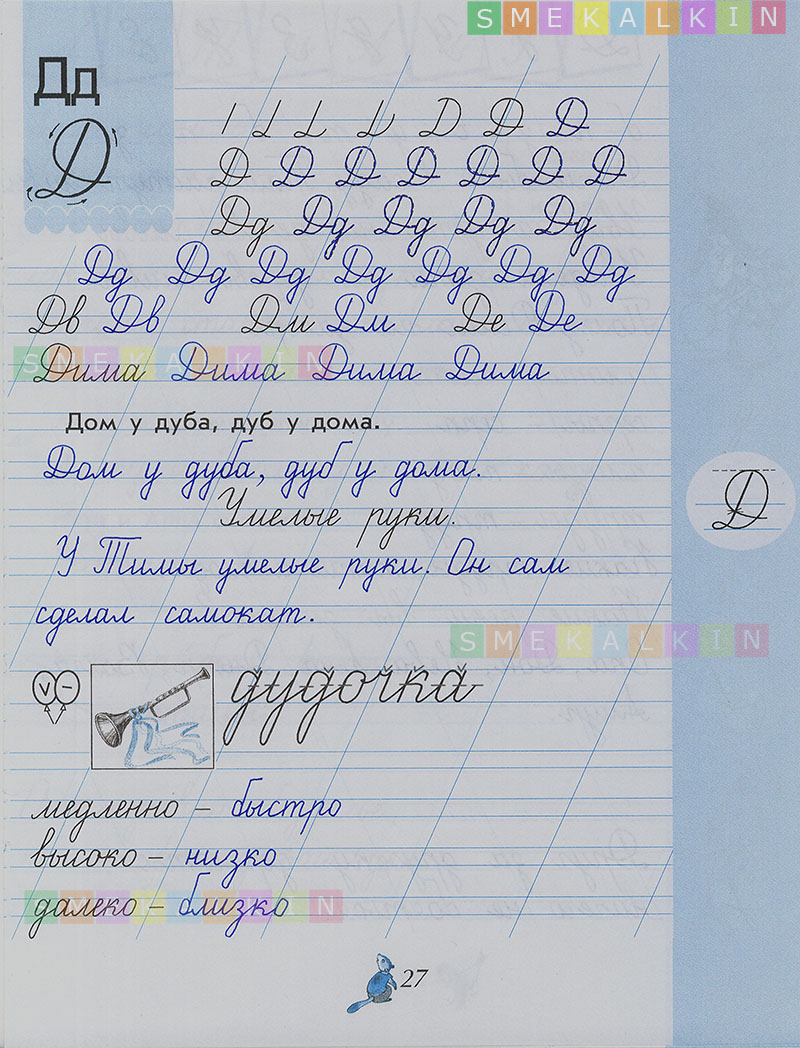 SMEKALKIN
Дд
Д
Д Д
Д Д Д Д Д Д Д
Дд Дд Дд Дд Дд
Дд Дд Дд Дд Дд Дд Дд
Дв Дв Дм Дм Де Де
SMEKALKIN
Дима Дима Дима Дима
Дом у дуба, дуб у дома.
Дом у дуба, дуб у дома.
Д
Умелые руки.
У Тимы умелые руки. Он сам
сделал самокат.
SMEKALKIN
дудочка
медленно – быстро
высоко – низко
SMEKALKIN
далеко – близко
27